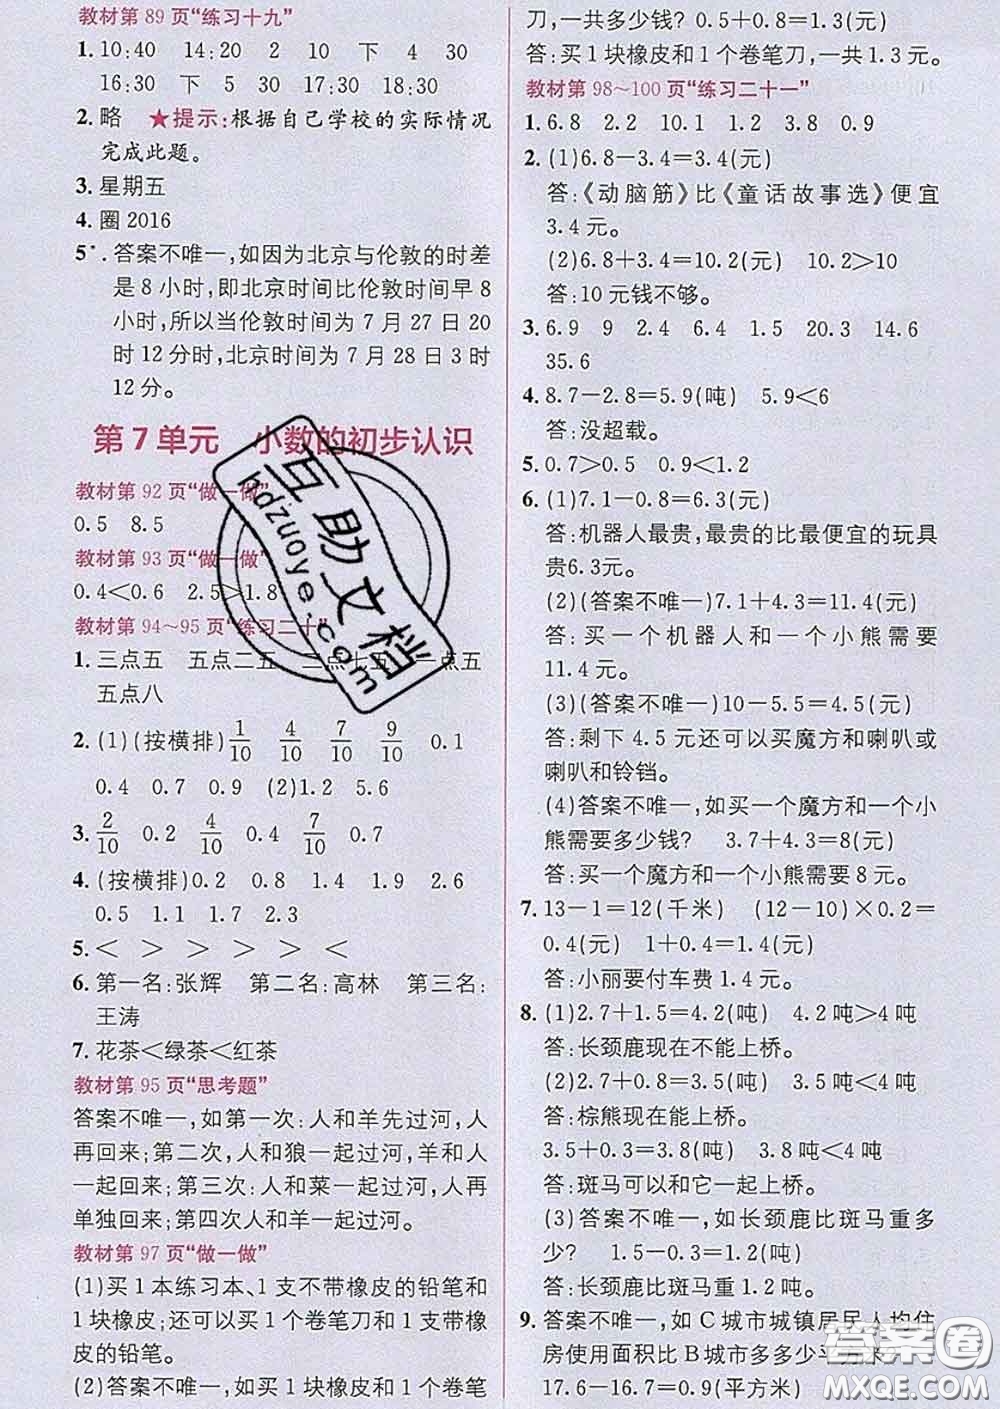 教材第 89 页“练习十九”
1. 10:40 14:20 2 10 下 4 30
16:30 下 5 30 17:30 18:30
2. 略 ★提示:根据自己学校的实际情况
完成此题。
3. 星期五
4. 圈2016
5*. 答案不唯一,如因为北京与伦敦的时差
是 8 小时,即北京时间比伦敦时间早 8
小时,所以当伦敦时间为 7 月 27 日 20
时 12 分时,北京时间为 7 月 28 日 3 时
12 分。
第 7 单元 小数的初步认识
教材第 92 页“做一做”
0.5 8.5
教材第 93 页“做一做”
0.4<0.6 2.5>1.8
教材第 94～95 页“练习二十”
1. 三点五 五点二五 三点七五 一点五
五点八
2. (1)(按横排)1/10 4/10 7/10 9/10 0.1
0.4 0.7 0.9 (2)1.2
3. 2/10 0.2 4/10 0.4 7/10 0.7
4. (按横排)0.2 0.8 1.4 2.6
0.5 1.1 1.7 2.3
5. < > > > > <
6. 第一名:张辉 第二名:高林 第三名:
王涛
7. 花茶<绿茶<红茶
教材第 95 页“思考题”
答案不唯一,如第一次:人和羊先过河,人
再回来;第二次,人和狼一起过河,羊和人
一起回来;第三次:人和菜一起过河,人再
单独回来;第四次人和羊一起过河。
教材第 97 页“做一做”
(1)买 1 本练习本、1 支不带橡皮的铅笔和
1 块橡皮;还可以买 1 个卷笔刀和 1 支带橡
皮的铅笔。
(2)答案不唯一,如买 1 块橡皮和 1 个卷笔
刀,一共多少钱? 0.5+0.8=1.3(元)
答:买 1 块橡皮和 1 个卷笔刀,一共 1.3 元。
教材第 98～100 页“练习二十一”
1. 6.8 2.2 10.1 1.2 3.8 0.9
2. (1)6.8-3.4=3.4(元)
答:《动脑筋》比《童话故事选》便宜
3.4 元。
(2)6.8+3.4=10.2(元) 10.2>10
答:10 元钱不够。
3. 6.9 9 2.4 6.4 1.5 20.3 14.6
35.6
4. 8.7-2.8=5.9(吨) 5.9<6
答:没超载。
5. 0.7>0.5 1.9<2.1
6. (1)7.1-0.8=6.3(元)
答:机器人最贵,最贵的比最便宜的玩具
贵6.3元。
(2)(答案不唯一)7.1+4.3=11.4(元)
答:买一个机器人和一个小熊需要
11.4 元。
(3)(答案不唯一)10-5.5=4.5(元)
答:剩下 4.5 元还可以买魔方和喇叭或
喇叭和铃铛。
(4)答案不唯一,如买一个魔方和一个小
熊需要多少钱? 3.7+4.3=8(元)
答:买一个魔方和一个小熊需要 8 元。
7. 13-1=12(千米) (12-10)×0.2=
0.4(元) 1+0.4=1.4(元)
答:小丽要付车费 1.4 元。
8. (1)2.7+1.5=4.2(吨) 4.2 吨>4 吨
答:长颈鹿现在不能上桥。
(2)2.7+0.5=3.2(吨) 3.2 吨<4 吨
答:棕熊现在能上桥。
3.5+0.3=3.8(吨) 3.8 吨<4 吨
答:斑马可以和它一起上桥。
(3)答案不唯一,如长颈鹿比斑马重多
少? 1.5-0.3=1.2(吨)
答:长颈鹿比斑马重 1.2 吨。
9. 答案不唯一,如 C 城市城镇居民人均住
房使用面积比 B 城市多多少平方米?
17.6-16.7=0.9(平方米)
互助文档
hdzuoye.com
答案圈
MXQE.COM